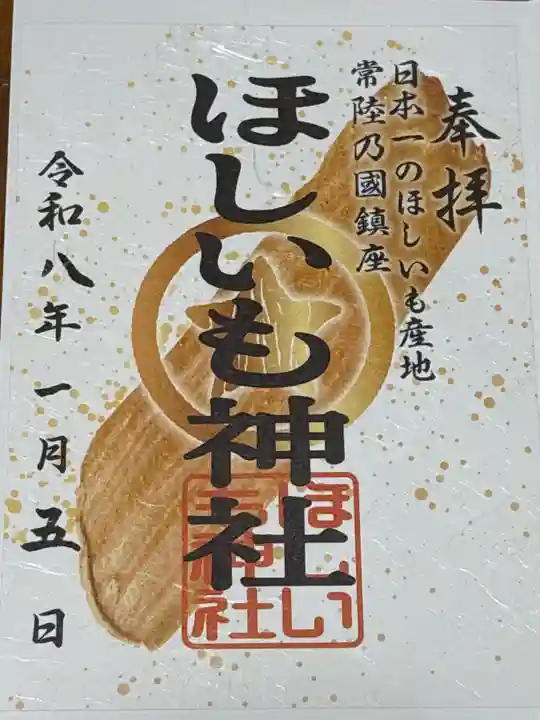 奉拝
日本一のほしいも産地
常陸乃國鎮座
ほしいも神社
ほしい
も神社
令和八年一月五日